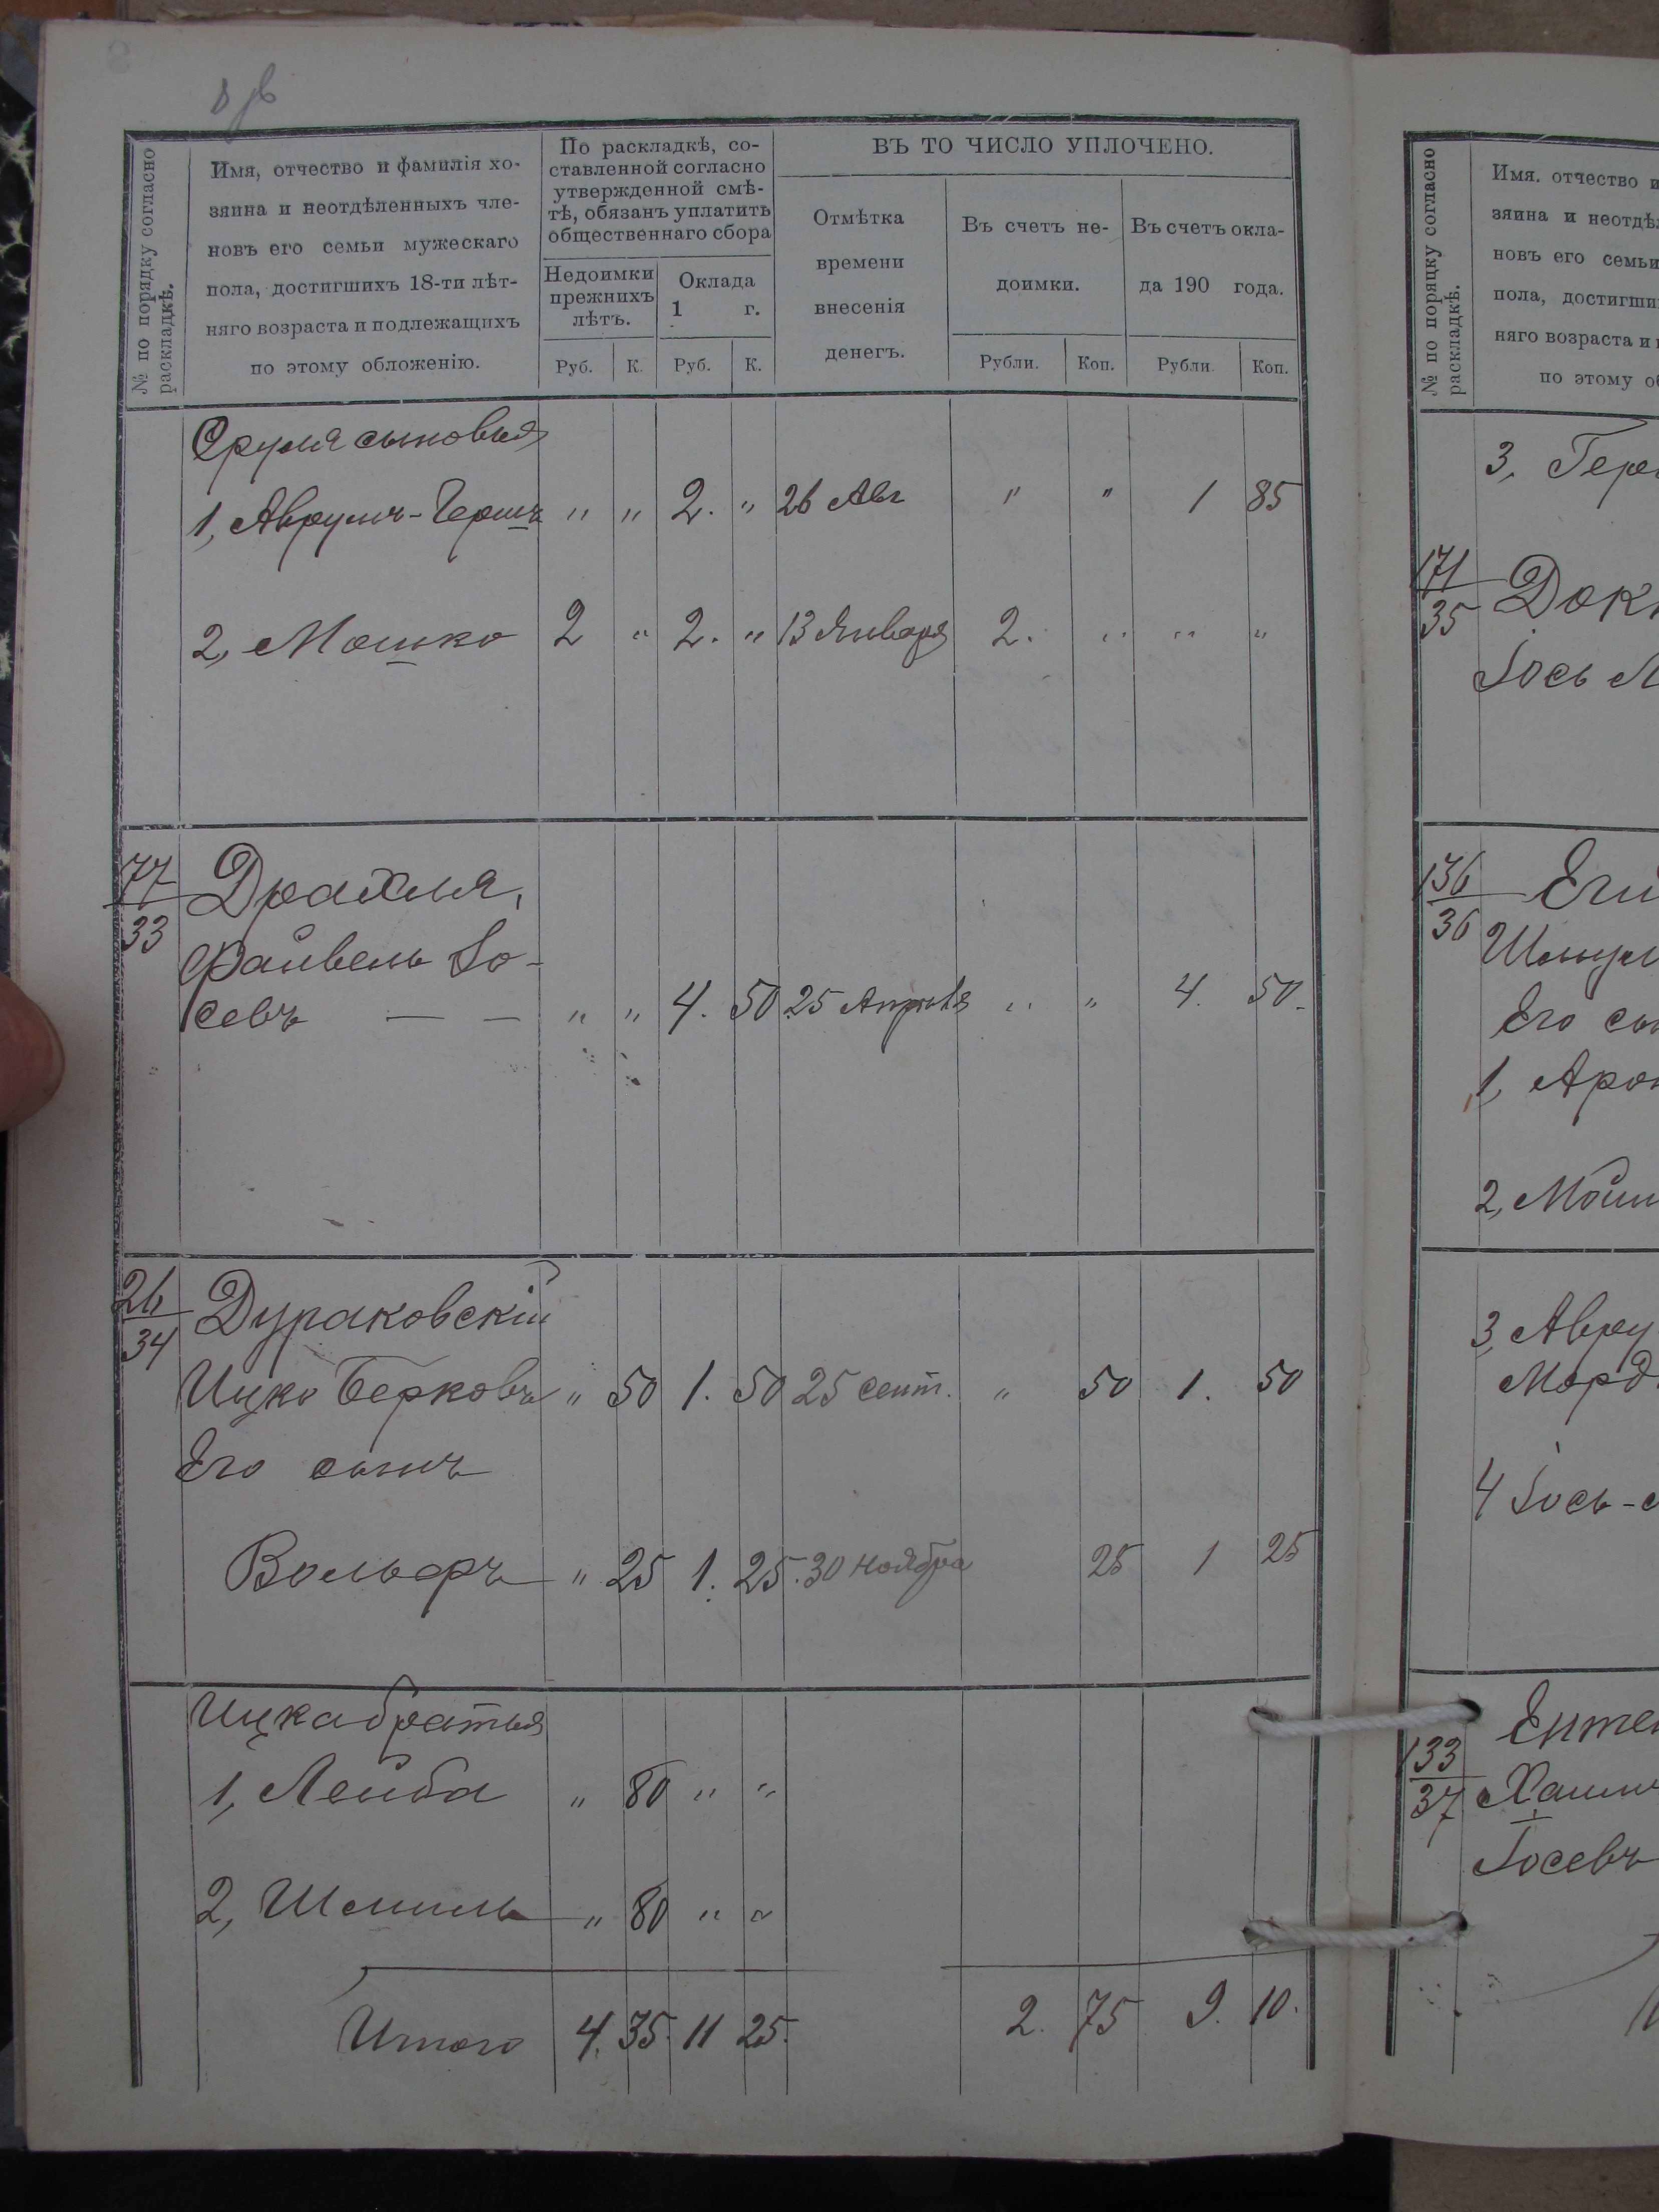 8 об
№ по порядку согласно раскладкѣ.
Имя, отчество и фамилія хо-
зяина и неотдѣленныхъ чле-
новъ его семьи мужескаго
пола, достигшихъ 18-ти лѣт-
няго возраста и подлежащихъ
по этому обложенію.
По раскладкѣ, со-
ставленной согласно
утвержденной смѣ-
тѣ, обязанъ уплатить
общественнаго сбора
Недоимки
прежнихъ
лѣтъ.
Оклада
1 г.
Руб. К. Руб. К.
ВЪ ТО ЧИСЛО УПЛОЧЕНО.
Отмѣтка
времени
внесенія
денегъ.
Въ счетъ не-
доимки.
Въ счетъ окла-
да 190 года.
Рубли. Коп. Рубли. Коп.
Сруля сыновья
1, Аврумъ-Гершъ " " 2. " 26 Авг " " 1 85
2, Мошко 2 " 2. " 13 Января 2. " " "
77
33
Драхля,
Файвель Іо-
севъ — — " " 4. 50 25 Апрѣля " " 4. 50
26
34
Дураковскій
Ицко Берковъ " 50 1. 50 25 сент. " 50 1. 50
Его сынъ
Вольфъ " 25 1. 25. 30 ноября 25 1 25
Ицка братья
1, Лейба " 80 " "
2, Шмиль " 80 " "
Итого 4. 35. 11 25. 2. 75 9. 10.
№ по порядку согласно раскладкѣ.
Имя. отчество и
зяина и неотдѣ
новъ его семьи
пола, достигши
няго возраста и
по этому об
3,
171
35
Іось
136
36
Его
1,
2,
3,
4 Іось-
133
37
Іосевъ